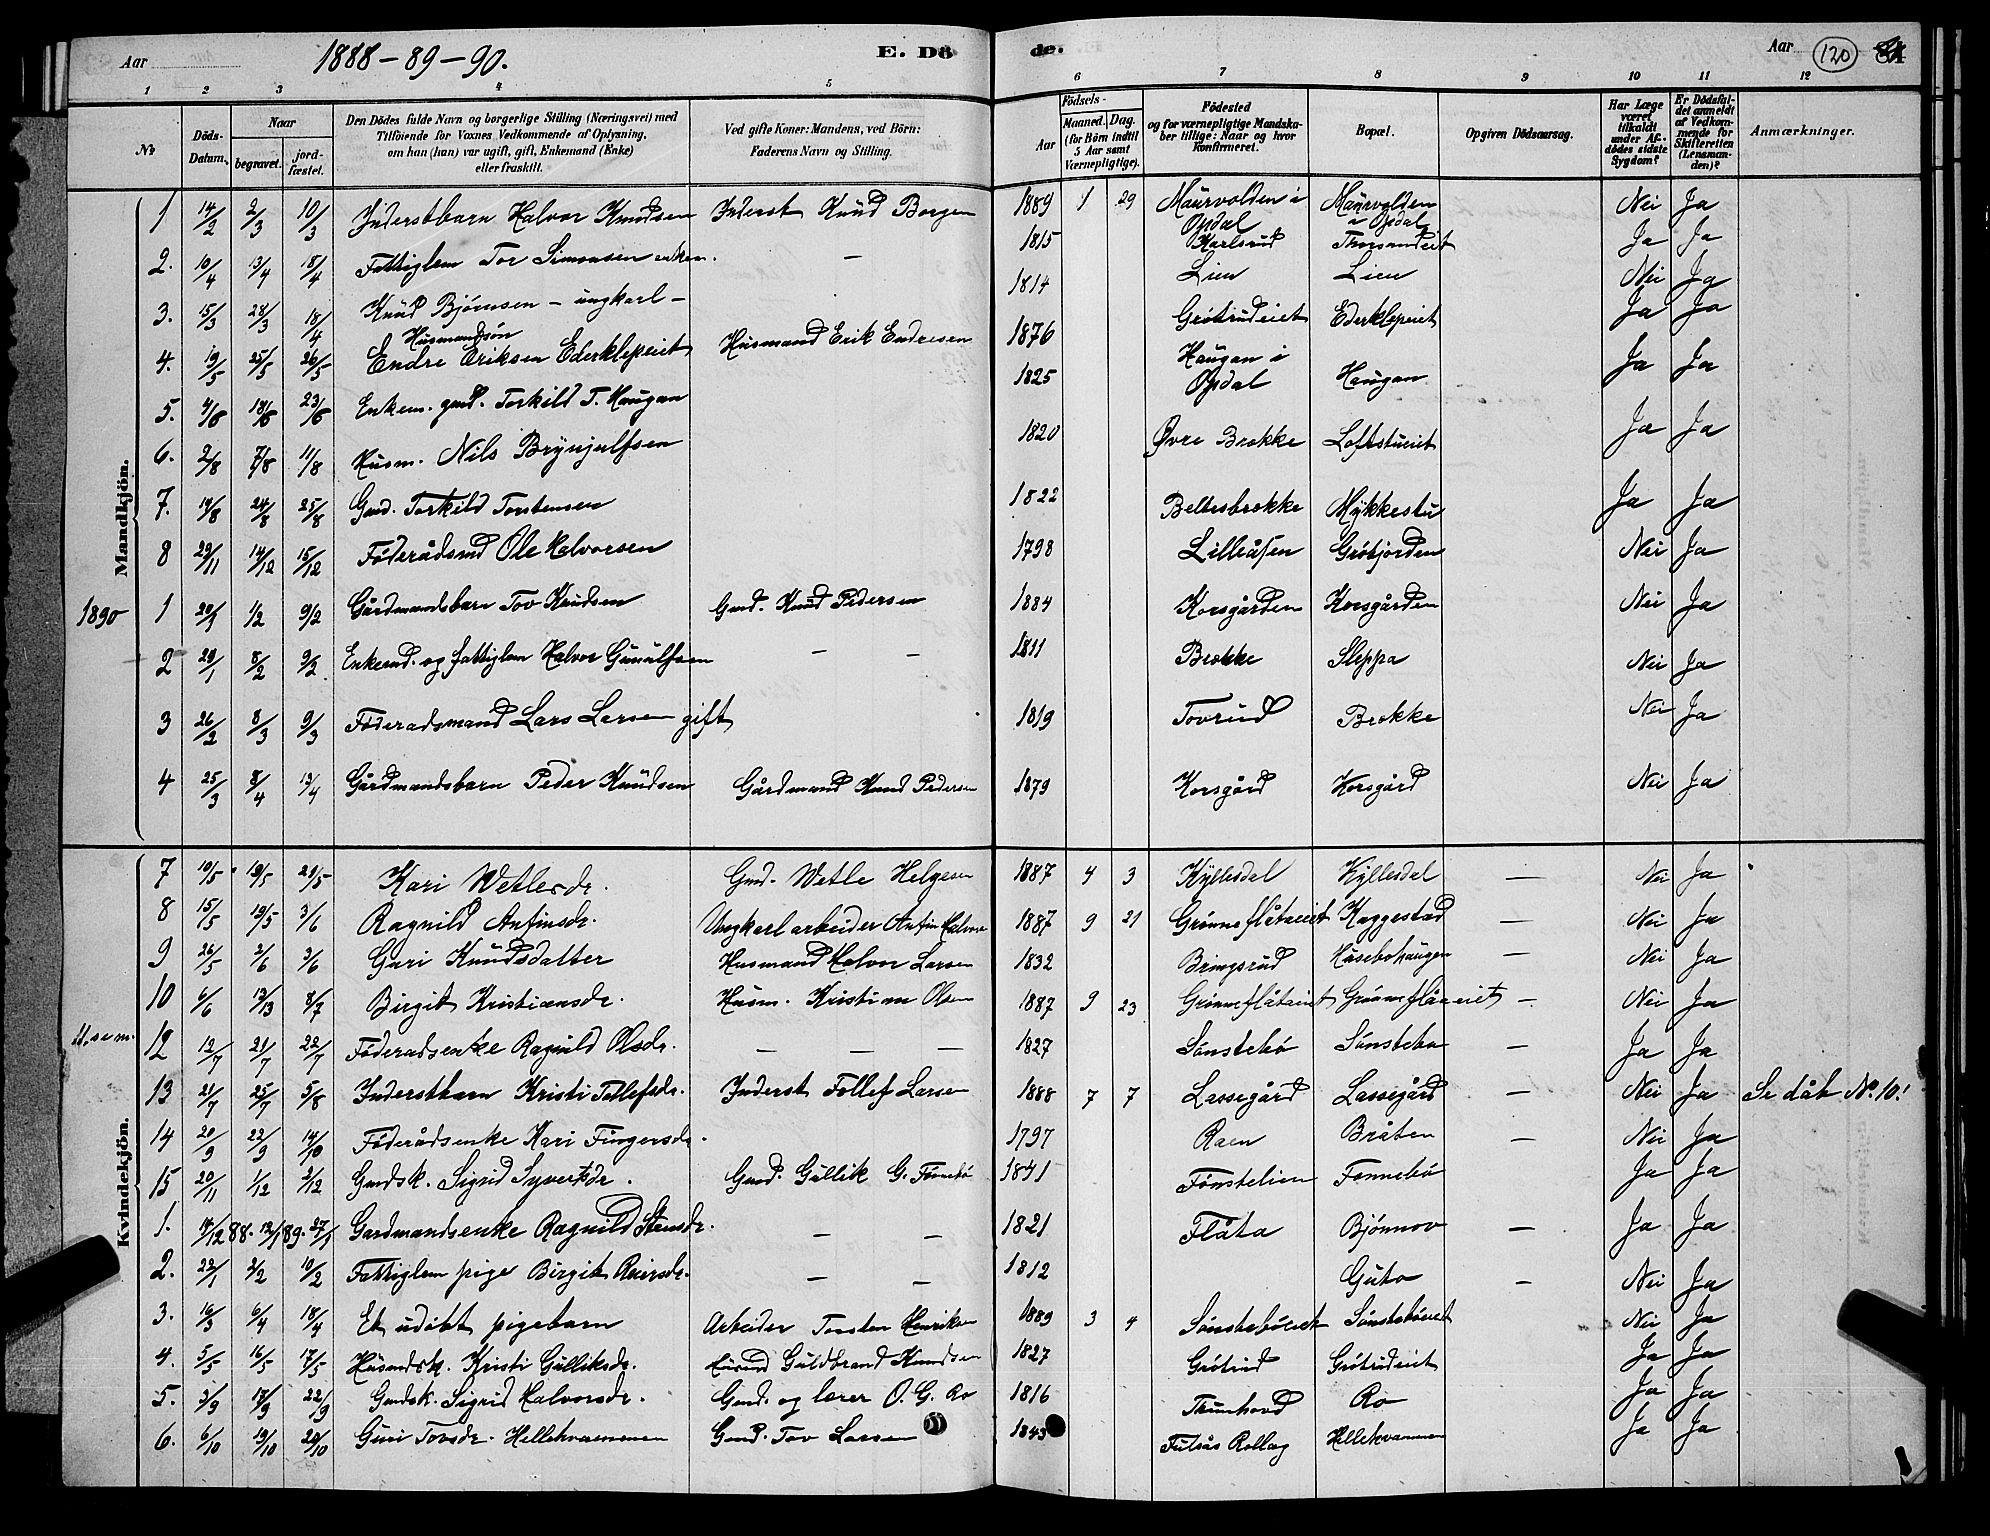 Aar 1888-89-90. E. Dö
de. Aar 120
1 2 3 4 5 6 7 8 9 10 11 12
No Döds-Datum. Naar begravet. jordfæstet. Den Dödes fulde Navn og borgerlige Stilling (Næringsvei) med Tilföiende for Voxnes Vedkommende af Oplysning, om han (hun) var ugift, gift, Enkemand (Enke) eller fraskilt. Ved gifte Koner: Mandens, ved Börn: Faderens Navn og Stilling. Födsels- Aar Maaned. Dag. (for Börn indtil 5 Aar samt Værnepligtige). Födested og for værnepligtige Mandskaber tillige: Naar og hvor Konfirmeret. Bopæl. Opgiven Dödsaarsag. Har Læge været tilkaldt under Afdödes sidste Sygdom? Er Dödsfaldet anmeldt af Vedkommende for Skifteretten (Lensmanden)? Anmærkninger.
Mandkjön.
1 14/2 2/3 10/3 Inderstbarn Halvor Knudsen Inderst Knud Borgen 1889 1 29 Maurvolden i Opdal Maurvolden i Opdal Nei Ja
2. 10/4 13/4 18/4 Fattiglem Tor Simonsen enkem. — 1815 Karlsrud Ja Ja
3. 15/3 28/3 18/4 Knud Bjørnsen - ungkarl - 1814 Lien Lien Nei Ja
4. 19/5 25/5 26/5 Husmandsøn Endre Eriksen Ederklepeiet Husmand Erik Endresen 1876 Grøtrudeiet Ederklepeiet Ja Ja
5. 4/6 18/6 23/6 Enkem. gmd. Torkild T. Haugan 1825 Haugan i Opdal Haugan Ja Ja
6. 2/8 7/8 11/8 Husm. Nils Brynjulfsen 1820 Øvre Brøkke Loftstueiet Ja Ja
7. 19/8 24/8 25/8 Gmd. Torkild Torstensen 1822 Beltesbrøkke Mykkestu Ja Ja
8 29/11 14/12 15/12 Føderådsmd Ole Halvorsen 1798 Lilleåsen Grøtjorden Nei Ja
1890 1 20/1 1/2 9/2 Gårdmandsbarn Tov Knudsen Gmd. Knud Pedersen 1884 Korsgården Korsgården Nei Ja
2 29/1 8/2 9/2 Enkemd. og fattiglem Halvor Gunulfsen — — 1811 Brøkke Sleppa Nei Ja
3 26/2 8/3 9/3 Føderadsmand Lars Larsen gift 1819 Tovrud Brøkke Nei Ja
4 25/3 8/4 13/4 Gårdmandsbarn Peder Knudsen Gårdmand Knud Pedersen 1879 Korsgård Korsgård Nei Ja
Kvindekjön.
7 10/5 19/5 21/5 Kari Wetlesdr. Gmd. Wetle Helgesen 1887 4 3 Kyllesdal Kyllesdal — Nei Ja
8 15/5 19/5 3/6 Ragnild Anfinsdr. Ungkarl arbeider Anfin Halvor 1887 9 21 Grønneflåteiet Kaggestad — Nei Ja
9 26/5 2/6 3/6 Guri Knudsdatter Husmand Halvor Larsen 1832 Bringsrud Husebohaugen — Nei Ja
10 6/6 8/7 Birgit Kristiansdr. Husm. Kristian Olsen 1887 9 23 Grønneflåteiet Grønneflåteiet — Nei Ja
12 12/7 21/7 22/7 Føderadsenke Ragnild Olsdr. — — — 1827 Sønstebø Sønstebø — Ja Ja
13 21/7 25/7 5/8 Inderstbarn Kristi Tollefsdr. Inderst Tollef Larsen 1888 7 7 Lassegård Lassegård — Nei Ja Se dåb No. 10!
14 20/9 22/9 14/10 Føderådsenke Kari Fingersdr. 1797 Raen Bråten — Nei Ja
15 20/11 1/12 2/12 Gmdsk. Sigrid Syvertsdr. Gmd. Gullik G. Fønnebø 1841 Fønstelien Fønnebø Ja Ja
1. 14/12 88. 12/1 89. 27/1 Gardmandsenke Ragnild Stensdr. — — 1821 Flåta Bjønnov — Ja Ja
2. 22/1 2/2 10/2 Fattiglem pige Birgit Reiersdr. — — 1812 Guto — Nei Ja
3. 16/3 6/4 18/4 Et udøbt pigebarn Arbeider Torsten Henriksen 1889 3 4 Sønstebøeiet Sønstebøeiet Nei Ja
4. 5/5 16/5 17/5 Husmdsk. Kristi Gulliksdr. Husmd Guldbrand Knudsen 1827 Grøtrud Grøtrudeiet Ja Ja
5. 3/9 17/9 22/9 Gmdsk. Sigrid Halvorsdr. Gmd. og lærer O. G. Ro 1816 Tunhovd Ro Ja Ja
6. 6/10 19/10 20/10 Guri Tovsdr. Hellekvammen Gmd. Tov Larsen 1843 Rollag Hellekvammen Ja Ja